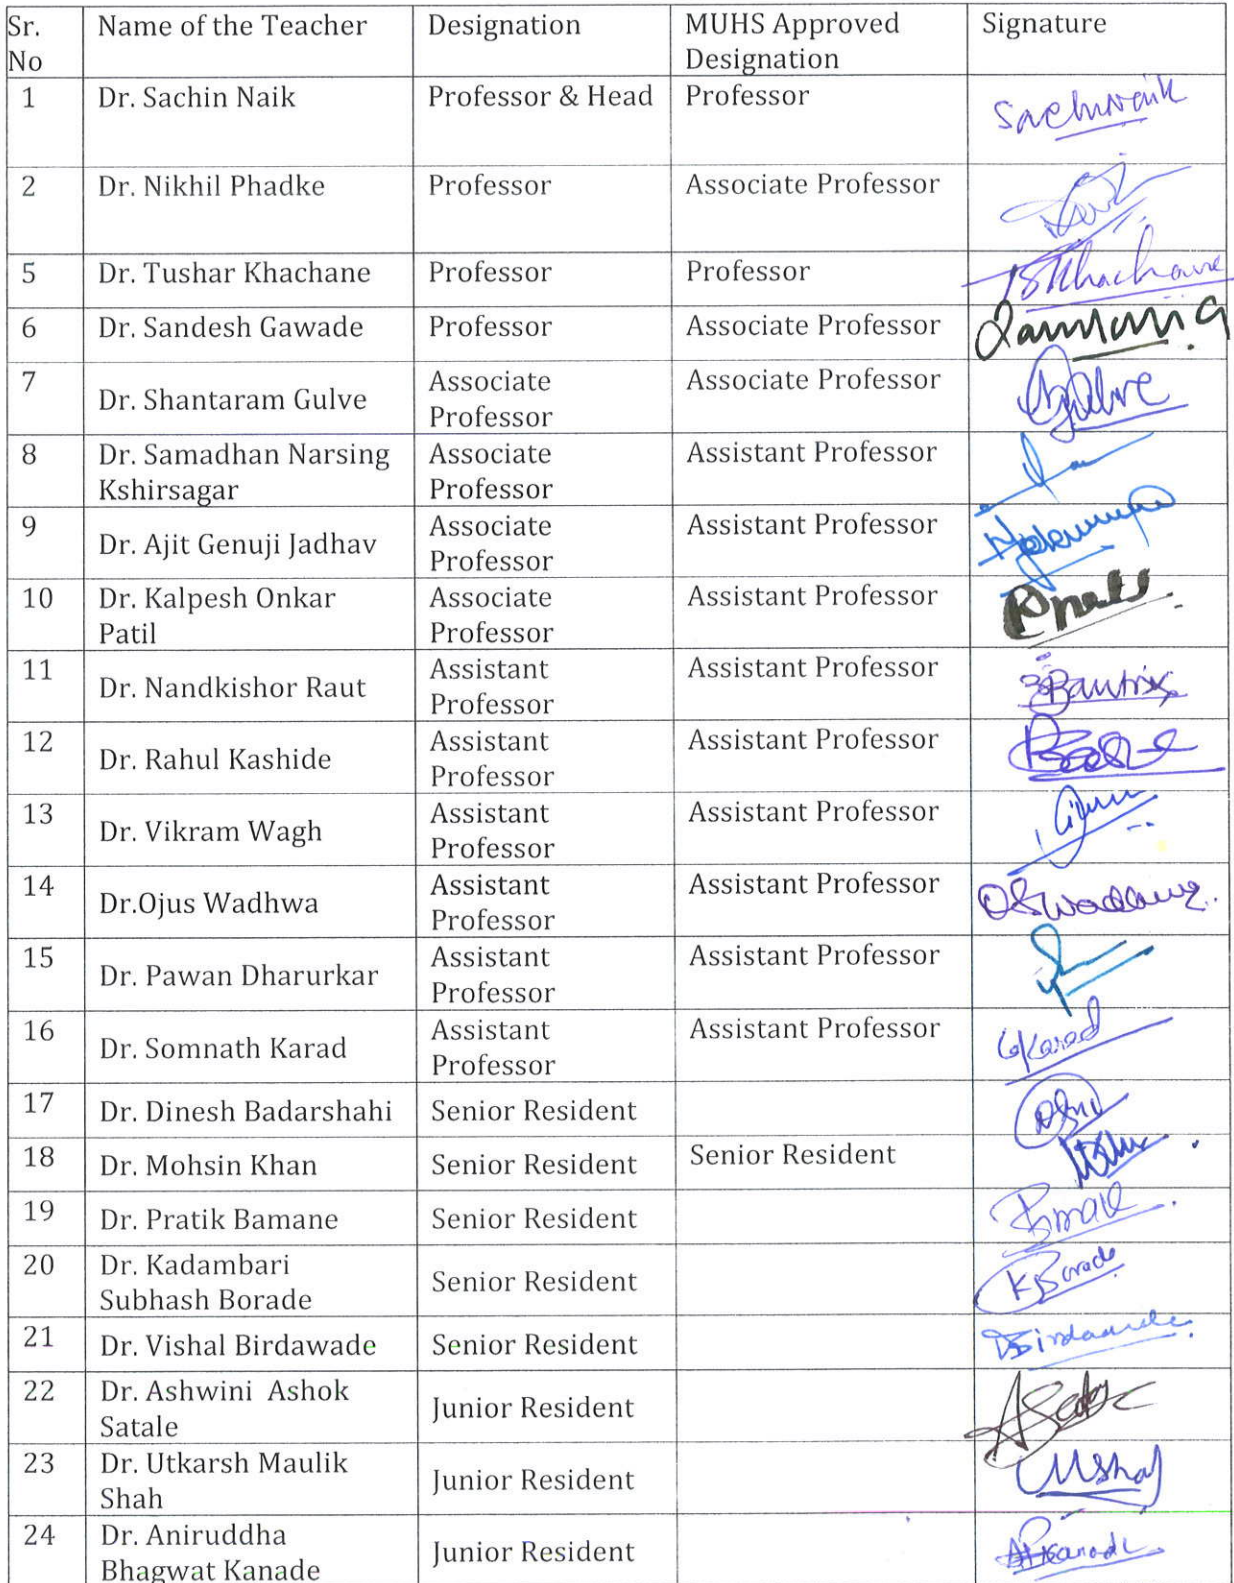 Sr. No Name of the Teacher Designation MUHS Approved Designation Signature
1 Dr. Sachin Naik Professor & Head Professor Sachinnaik
2 Dr. Nikhil Phadke Professor Associate Professor
5 Dr. Tushar Khachane Professor Professor TSKhachane
6 Dr. Sandesh Gawade Professor Associate Professor
7 Dr. Shantaram Gulve Associate Professor Associate Professor
8 Dr. Samadhan Narsing Kshirsagar Associate Professor Assistant Professor
9 Dr. Ajit Genuji Jadhav Associate Professor Assistant Professor
10 Dr. Kalpesh Onkar Patil Associate Professor Assistant Professor
11 Dr. Nandkishor Raut Assistant Professor Assistant Professor
12 Dr. Rahul Kashide Assistant Professor Assistant Professor
13 Dr. Vikram Wagh Assistant Professor Assistant Professor
14 Dr.Ojus Wadhwa Assistant Professor Assistant Professor
15 Dr. Pawan Dharurkar Assistant Professor Assistant Professor
16 Dr. Somnath Karad Assistant Professor Assistant Professor
17 Dr. Dinesh Badarshahi Senior Resident
18 Dr. Mohsin Khan Senior Resident Senior Resident
19 Dr. Pratik Bamane Senior Resident
20 Dr. Kadambari Subhash Borade Senior Resident KBorade
21 Dr. Vishal Birdawade Senior Resident
22 Dr. Ashwini Ashok Satale Junior Resident
23 Dr. Utkarsh Maulik Shah Junior Resident UShah
24 Dr. Aniruddha Bhagwat Kanade Junior Resident